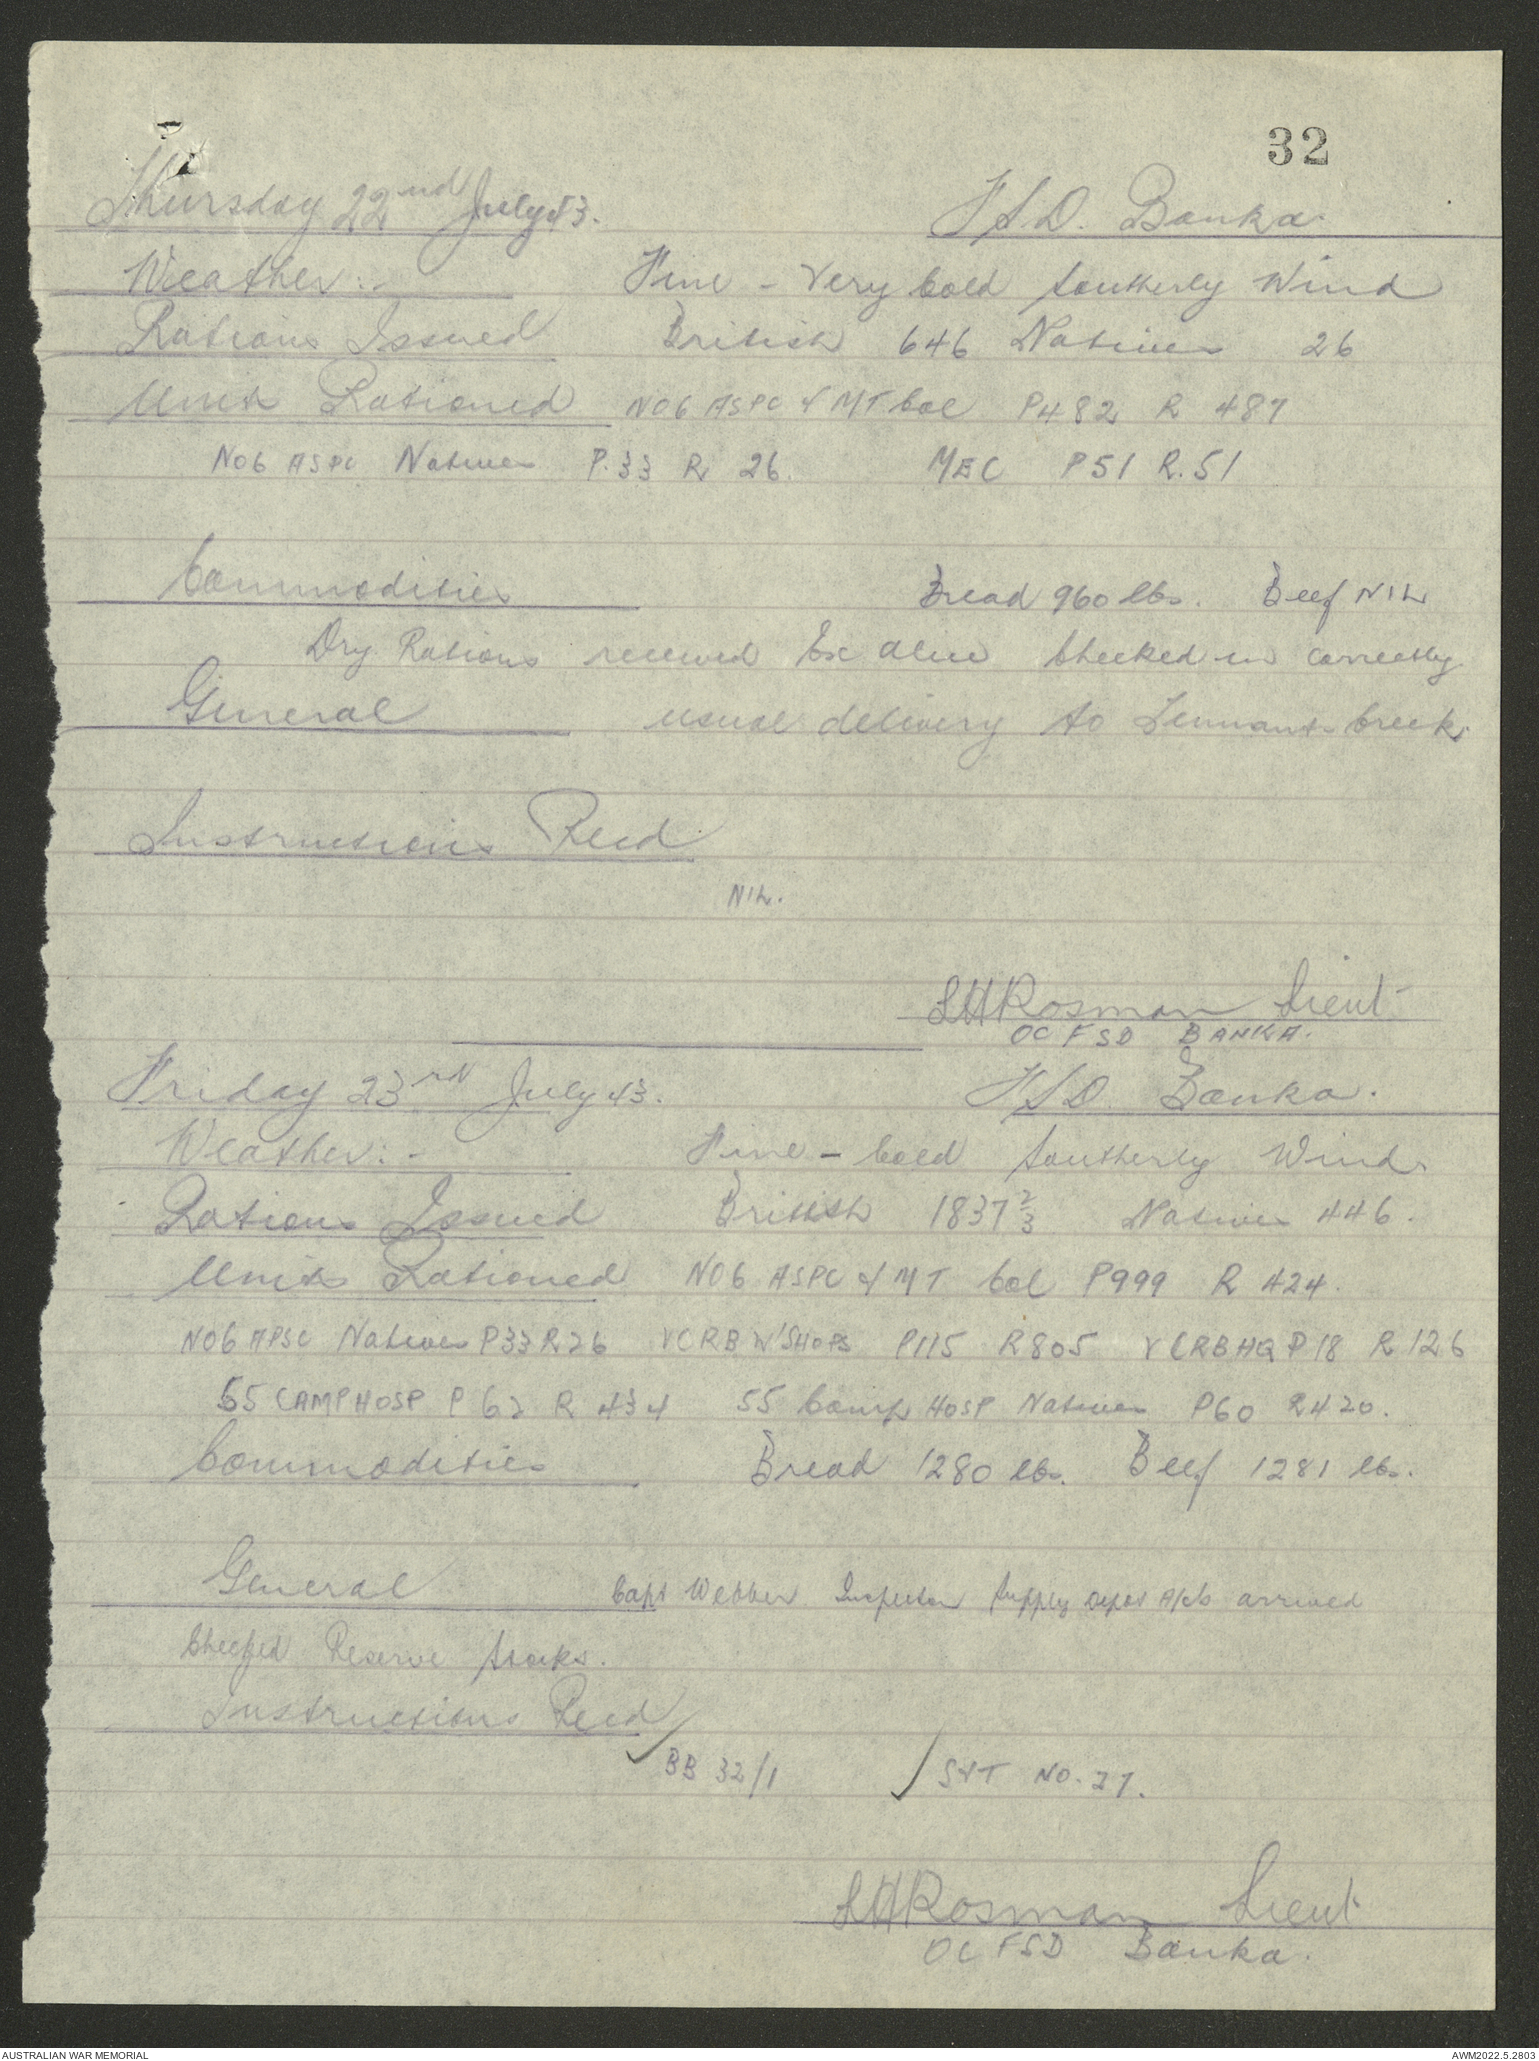 32
Thursday 22nd July 43. F.S.D. Banka.
Weather:- Fine - Very Cold Southerly Wind
Rations Issued British 646 Natives 26
Units Rationed NO6 ASPC & MT Col P482 R 487
NO6 ASPC Natives P.33 R 26. MEC P51 R.51
Commodities Bread 960 lbs. Beef NIL
Dry Rations received Ex Alice Checked in correctly
General usual delivery to Tennant Creek.
Instructions Recd.
NIL.
LHRosman Lieut
OC FSD BANKA.
Friday 23rd July 43. F.S.D. Banka.
Weather:- Fine - Cold Southerly Wind.
Rations Issued British 1837 2/3 Natives 446.
Units Rationed NO6 ASPC & MT Col P999 R 424.
NO6 APSC Natives P33 R26 VCRB W'SHOPS P115 R805 VCRBHQ P18 R126
55 CAMP HOSP P 62 R 434 55 Camp HOSP Natives P60 R420.
Commodities Bread 1280 lbs. Beef 1281 lbs.
General Capt Webber Inspector Supply Depot A/cs arrived
Checked Reserve Stocks.
Instructions Recd
BB 32/1 S&T NO. 27.
LHRosman Lieut
OC FSD Banka.
AUSTRALIAN WAR MEMORIAL AWM2022.5.2803